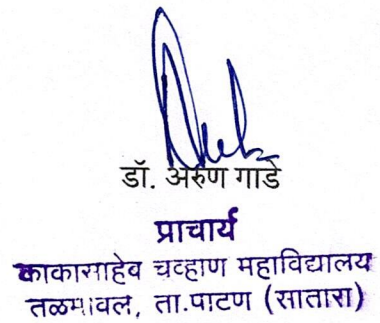 डॉ. अरुण गाडे
प्राचार्य
काकासाहेब चव्हाण महाविद्यालय
तळमावले, ता.पाटण (सातारा)